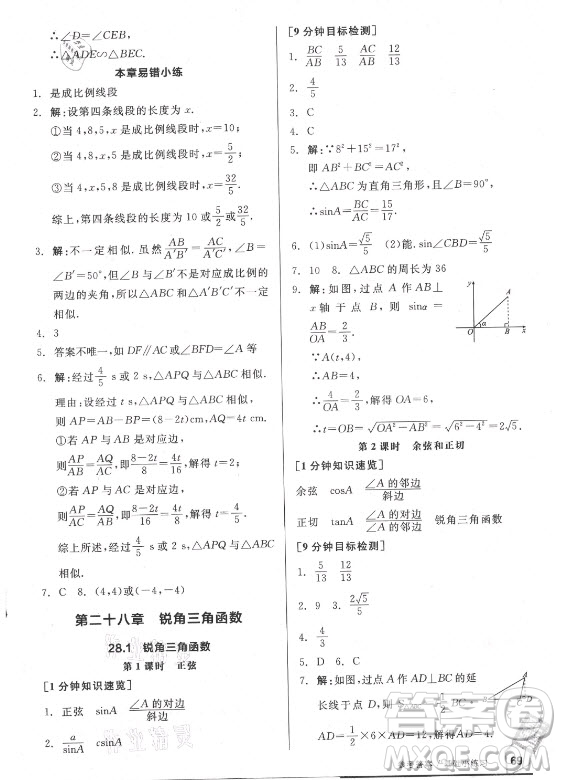 ∴∠D=∠CEB,
∴△ADE∽△BEC.
本章易错小练
1. 是成比例线段
2. 解:设第四条线段的长度为 x.
①当 4,8,5,x 是成比例线段时,x=10;
②当 4,8,x,5 是成比例线段时,x=5/2;
③当 4,x,5,8 是成比例线段时,x=32/5.
综上,第四条线段的长度为 10 或 5/2 或 32/5.
3. 解:不一定相似. 虽然 AB/A′B′=AC/A′C′,∠B=
∠B′=50°,但∠B 与∠B′不是对应成比例的
两边的夹角,所以△ABC 和△A′B′C′不一定
相似.
4. 3
5. 答案不唯一,如 DF∥AC 或∠BFD=∠A 等
6. 解:经过 4/5 s 或 2 s,△APQ 与△ABC 相似.
理由:设经过 t s,△APQ 与△ABC 相似,
此时 AP=AB−BP=8−2t,AQ=4t.
①若 AP 与 AB 是对应边,
则 AP/AB=AQ/AC,即 (8−2t)/8=4t/16,解得 t=2;
②若 AP 与 AC 是对应边,
则 AP/AC=AQ/AB,即 (8−2t)/16=4t/8,解得 t=4/5.
综上所述,经过 4/5 s 或 2 s,△APQ 与△ABC
相似.
7. C 8. (4,4)或(−4,−4)
第二十八章 锐角三角函数
28.1 锐角三角函数
第 1 课时 正弦
[1 分钟知识速览]
1. 正弦 sinA ∠A 的对边/斜边
2. a/sinA csinA
[9 分钟目标检测]
1. BC/AB 5/13 AC/AB 12/13
2. 4/5
3. C
4. C
5. 解:∵8²+15²=17²,
即 AB²+BC²=AC²,
∴△ABC 为直角三角形,且∠B=90°,
∴sinA=BC/AC=15/17.
6. (1)sinA=√5/5 (2)能. sin∠CBD=√5/5
7. 10 8. △ABC 的周长为 36
9. 解:如图,过点 A 作 AB⊥
x 轴于点 B,则 sinα=
AB/OA=2/3.
∵A(t,4),
∴4/OA=2/3,∴OA=6,
∴t=OB=√(OA²−AB²)=√(6²−4²)=2√5.
y
A
α
O
B
x
第 2 课时 余弦和正切
[1 分钟知识速览]
余弦 cosA ∠A 的邻边/斜边
正切 tanA ∠A 的对边/∠A 的邻边 锐角三角函数
[9 分钟目标检测]
1. 5/13 12/5
2. 9 3. 2√5/5 2
5. D 6. C
7. 解:如图,过点 A 作 AD⊥BC 的延
长线于点 D.
69